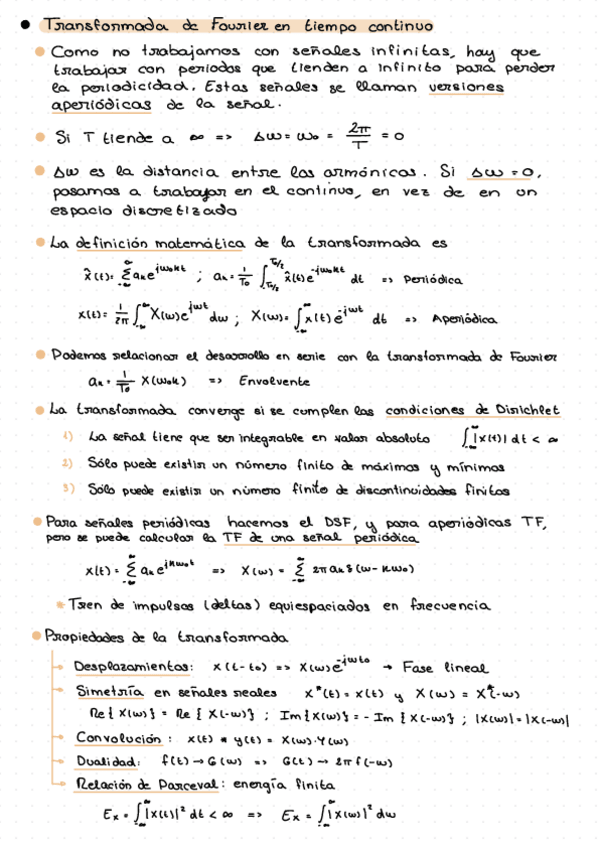 Transformada de Fourier en tiempo continuo
Como no trabajamos con señales infinitas, hay que
trabajar con periodos que tienden a infinito para perder
la periodicidad. Estas señales se llaman versiones
aperiódicas de la señal.
Si T tiende a ∞ => Δω = ω₀ = 2π/T = 0
Δω es la distancia entre los armónicos. Si Δω = 0,
pasamos a trabajar en el continuo, en vez de en un
espacio discretizado
La definición matemática de la transformada es
x̂(t) = ∑_{-∞}^{∞} aₖ e^{jω₀kt} ; aₖ = 1/T₀ ∫_{-T₀/2}^{T₀/2} x̂(t) e^{-jω₀kt} dt => Periódica
x(t) = 1/2π ∫_{-∞}^{∞} X(ω) e^{jωt} dω ; X(ω) = ∫_{-∞}^{∞} x(t) e^{-jωt} dt => Aperiódica
Podemos relacionar el desarrollo en serie con la transformada de Fourier
aₖ = 1/T₀ X(ω₀k) => Envolvente
La transformada converge si se cumplen las condiciones de Dirichlet
1) La señal tiene que ser integrable en valor absoluto ∫_{-∞}^{∞} |x(t)| dt < ∞
2) Sólo puede existir un número finito de máximos y mínimos
3) Sólo puede existir un número finito de discontinuidades finitas
Para señales periódicas hacemos el DSF, y para aperiódicas TF,
pero se puede calcular la TF de una señal periódica
x(t) = ∑_{-∞}^{∞} aₖ e^{jkω₀t} => X(ω) = ∑_{-∞}^{∞} 2π aₖ δ(ω - kω₀)
Tren de impulsos (deltas) equiespaciados en frecuencia
Propiedades de la transformada
Desplazamientos: x(t-t₀) => X(ω) e^{-jωt₀} → Fase lineal
Simetría en señales reales x*(t) = x(t) y X(ω) = X*(-ω)
Re{X(ω)} = Re{X(-ω)} ; Im{X(ω)} = - Im{X(-ω)} ; |X(ω)| = |X(-ω)|
Convolución: x(t) * y(t) = X(ω)·Y(ω)
Dualidad: f(t) → G(ω) => G(t) → 2π f(-ω)
Relación de Parceval: energía finita
Eₓ = ∫_{-∞}^{∞} |x(t)|² dt < ∞ => Eₓ = ∫_{-∞}^{∞} |x(ω)|² dω